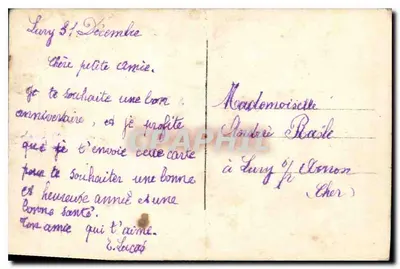 Lury 31 Décembre
Chère petite amie.
Je te souhaite une bon
anniversaire, et je profite
que je t'envoie cette carte
pour te souhaiter une bonne
et heureuse année et une
bonne santé.
Ton amie qui t'aime.
E. Lucas
Mademoiselle
Basle
à Lury s/ Arnon
(Cher)